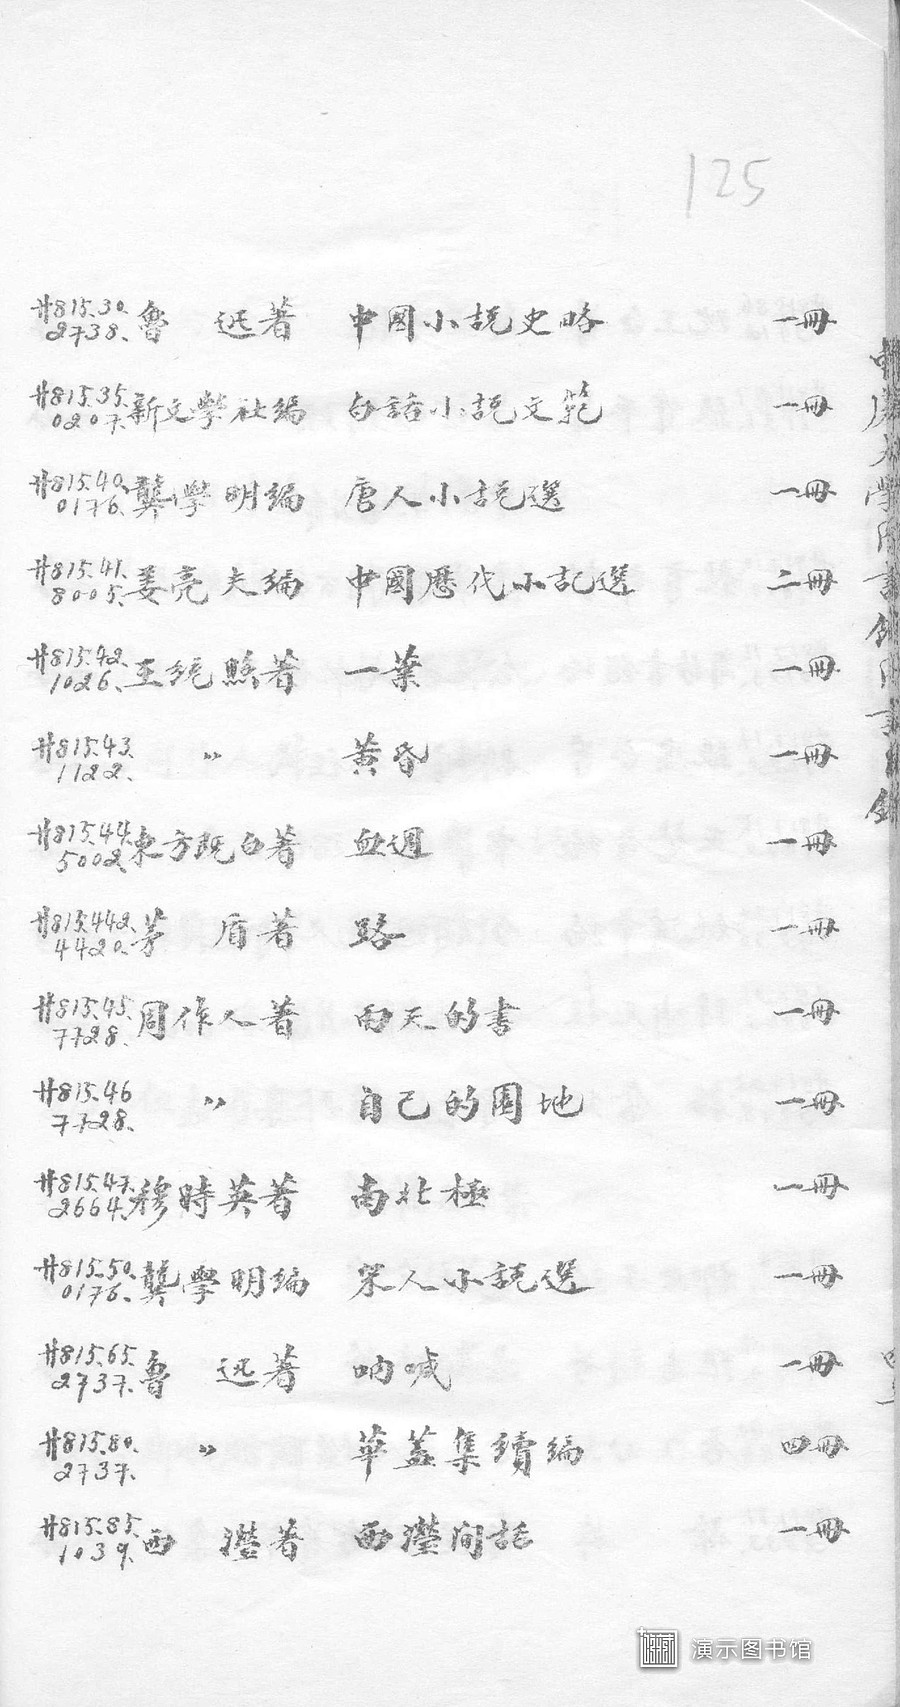 125
廾815.30. 魯 迅著 中國小說史略 一冊
2738.
廾815.35. 新文學社編 白話小說文範 一冊
0207.
廾815.40. 龔學明編 唐人小說選 一冊
0176.
廾815.41. 姜亮夫編 中國歷代小說選 二冊
8005.
廾815.42. 王統照著 一葉 一冊
1026.
廾815.43. 〃 黃昏 一冊
1122.
廾815.44. 東方既白著 血週 一冊
5002.
廾815.442. 茅 盾著 路 一冊
4420.
廾815.45. 周作人著 雨天的書 一冊
7728.
廾815.46 〃 自己的園地 一冊
7728.
廾815.47. 穆時英著 南北極 一冊
2664.
廾815.50. 龔學明編 宋人小說選 一冊
0176.
廾815.65. 魯 迅著 吶喊 一冊
2737.
廾815.80. 〃 華蓋集續編 四冊
2737.
廾815.85. 西 瀅著 西瀅閒話 一冊
1039.
演示图书馆